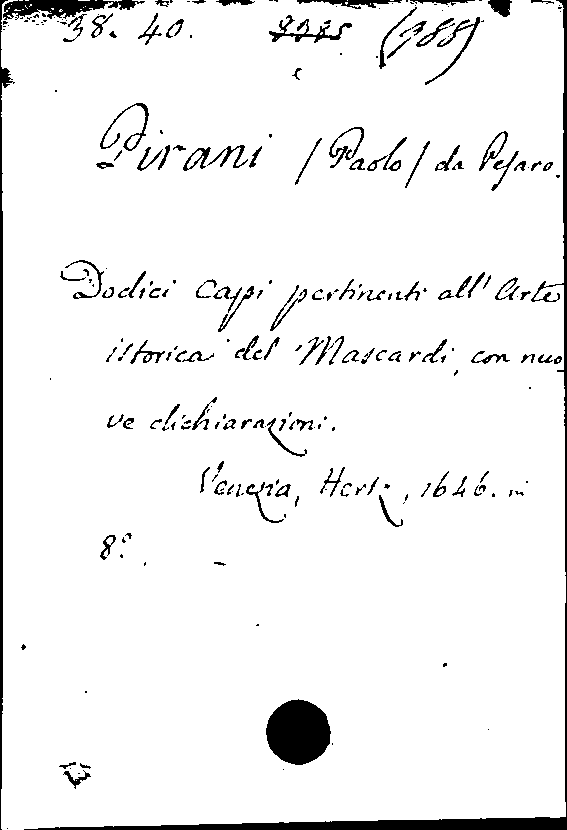 38. 40. 8385 (388)
Pirani / Paolo / da Pesaro.
Dodici capi pertinenti all' Arte
istorica del Mascardi, con nuo_
ve dichiarazioni.
Venezia, Hertz, 1646. in
8º.